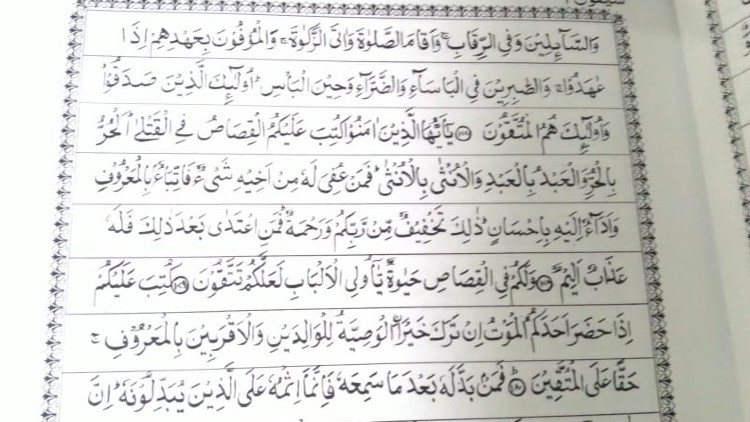 وَالسَّآئِلِيْنَ وَفِي الرِّقَابِ ۚ وَاَقَامَ الصَّلٰوةَ وَاٰتَى الزَّكٰوةَ ۚ وَالْمُوْفُوْنَ بِعَهْدِهِمْ اِذَا
عٰهَدُوْا ۚ وَالصّٰبِرِيْنَ فِي الْبَاْسَآءِ وَالضَّرَّآءِ وَحِيْنَ الْبَاْسِ ؕ اُولٰٓئِكَ الَّذِيْنَ صَدَقُوْا
وَاُولٰٓئِكَ هُمُ الْمُتَّقُوْنَ ۝ يٰٓاَيُّهَا الَّذِيْنَ اٰمَنُوْا كُتِبَ عَلَيْكُمُ الْقِصَاصُ فِي الْقَتْلٰى ؕ اَلْحُرُّ
بِالْحُرِّ وَالْعَبْدُ بِالْعَبْدِ وَالْاُنْثٰى بِالْاُنْثٰى ؕ فَمَنْ عُفِيَ لَهٗ مِنْ اَخِيْهِ شَيْءٌ فَاتِّبَاعٌۢ بِالْمَعْرُوْفِ
وَاَدَآءٌ اِلَيْهِ بِاِحْسَانٍ ؕ ذٰلِكَ تَخْفِيْفٌ مِّنْ رَّبِّكُمْ وَرَحْمَةٌ ؕ فَمَنِ اعْتَدٰى بَعْدَ ذٰلِكَ فَلَهٗ
عَذَابٌ اَلِيْمٌ ۝ وَلَكُمْ فِي الْقِصَاصِ حَيٰوةٌ يّٰٓاُولِي الْاَلْبَابِ لَعَلَّكُمْ تَتَّقُوْنَ ۝ كُتِبَ عَلَيْكُمْ
اِذَا حَضَرَ اَحَدَكُمُ الْمَوْتُ اِنْ تَرَكَ خَيْرَا ۖ ۨالْوَصِيَّةُ لِلْوَالِدَيْنِ وَالْاَقْرَبِيْنَ بِالْمَعْرُوْفِ ۚ
حَقًّا عَلَى الْمُتَّقِيْنَ ۝ فَمَنْۢ بَدَّلَهٗ بَعْدَ مَا سَمِعَهٗ فَاِنَّمَآ اِثْمُهٗ عَلَى الَّذِيْنَ يُبَدِّلُوْنَهٗ ؕ اِنَّ